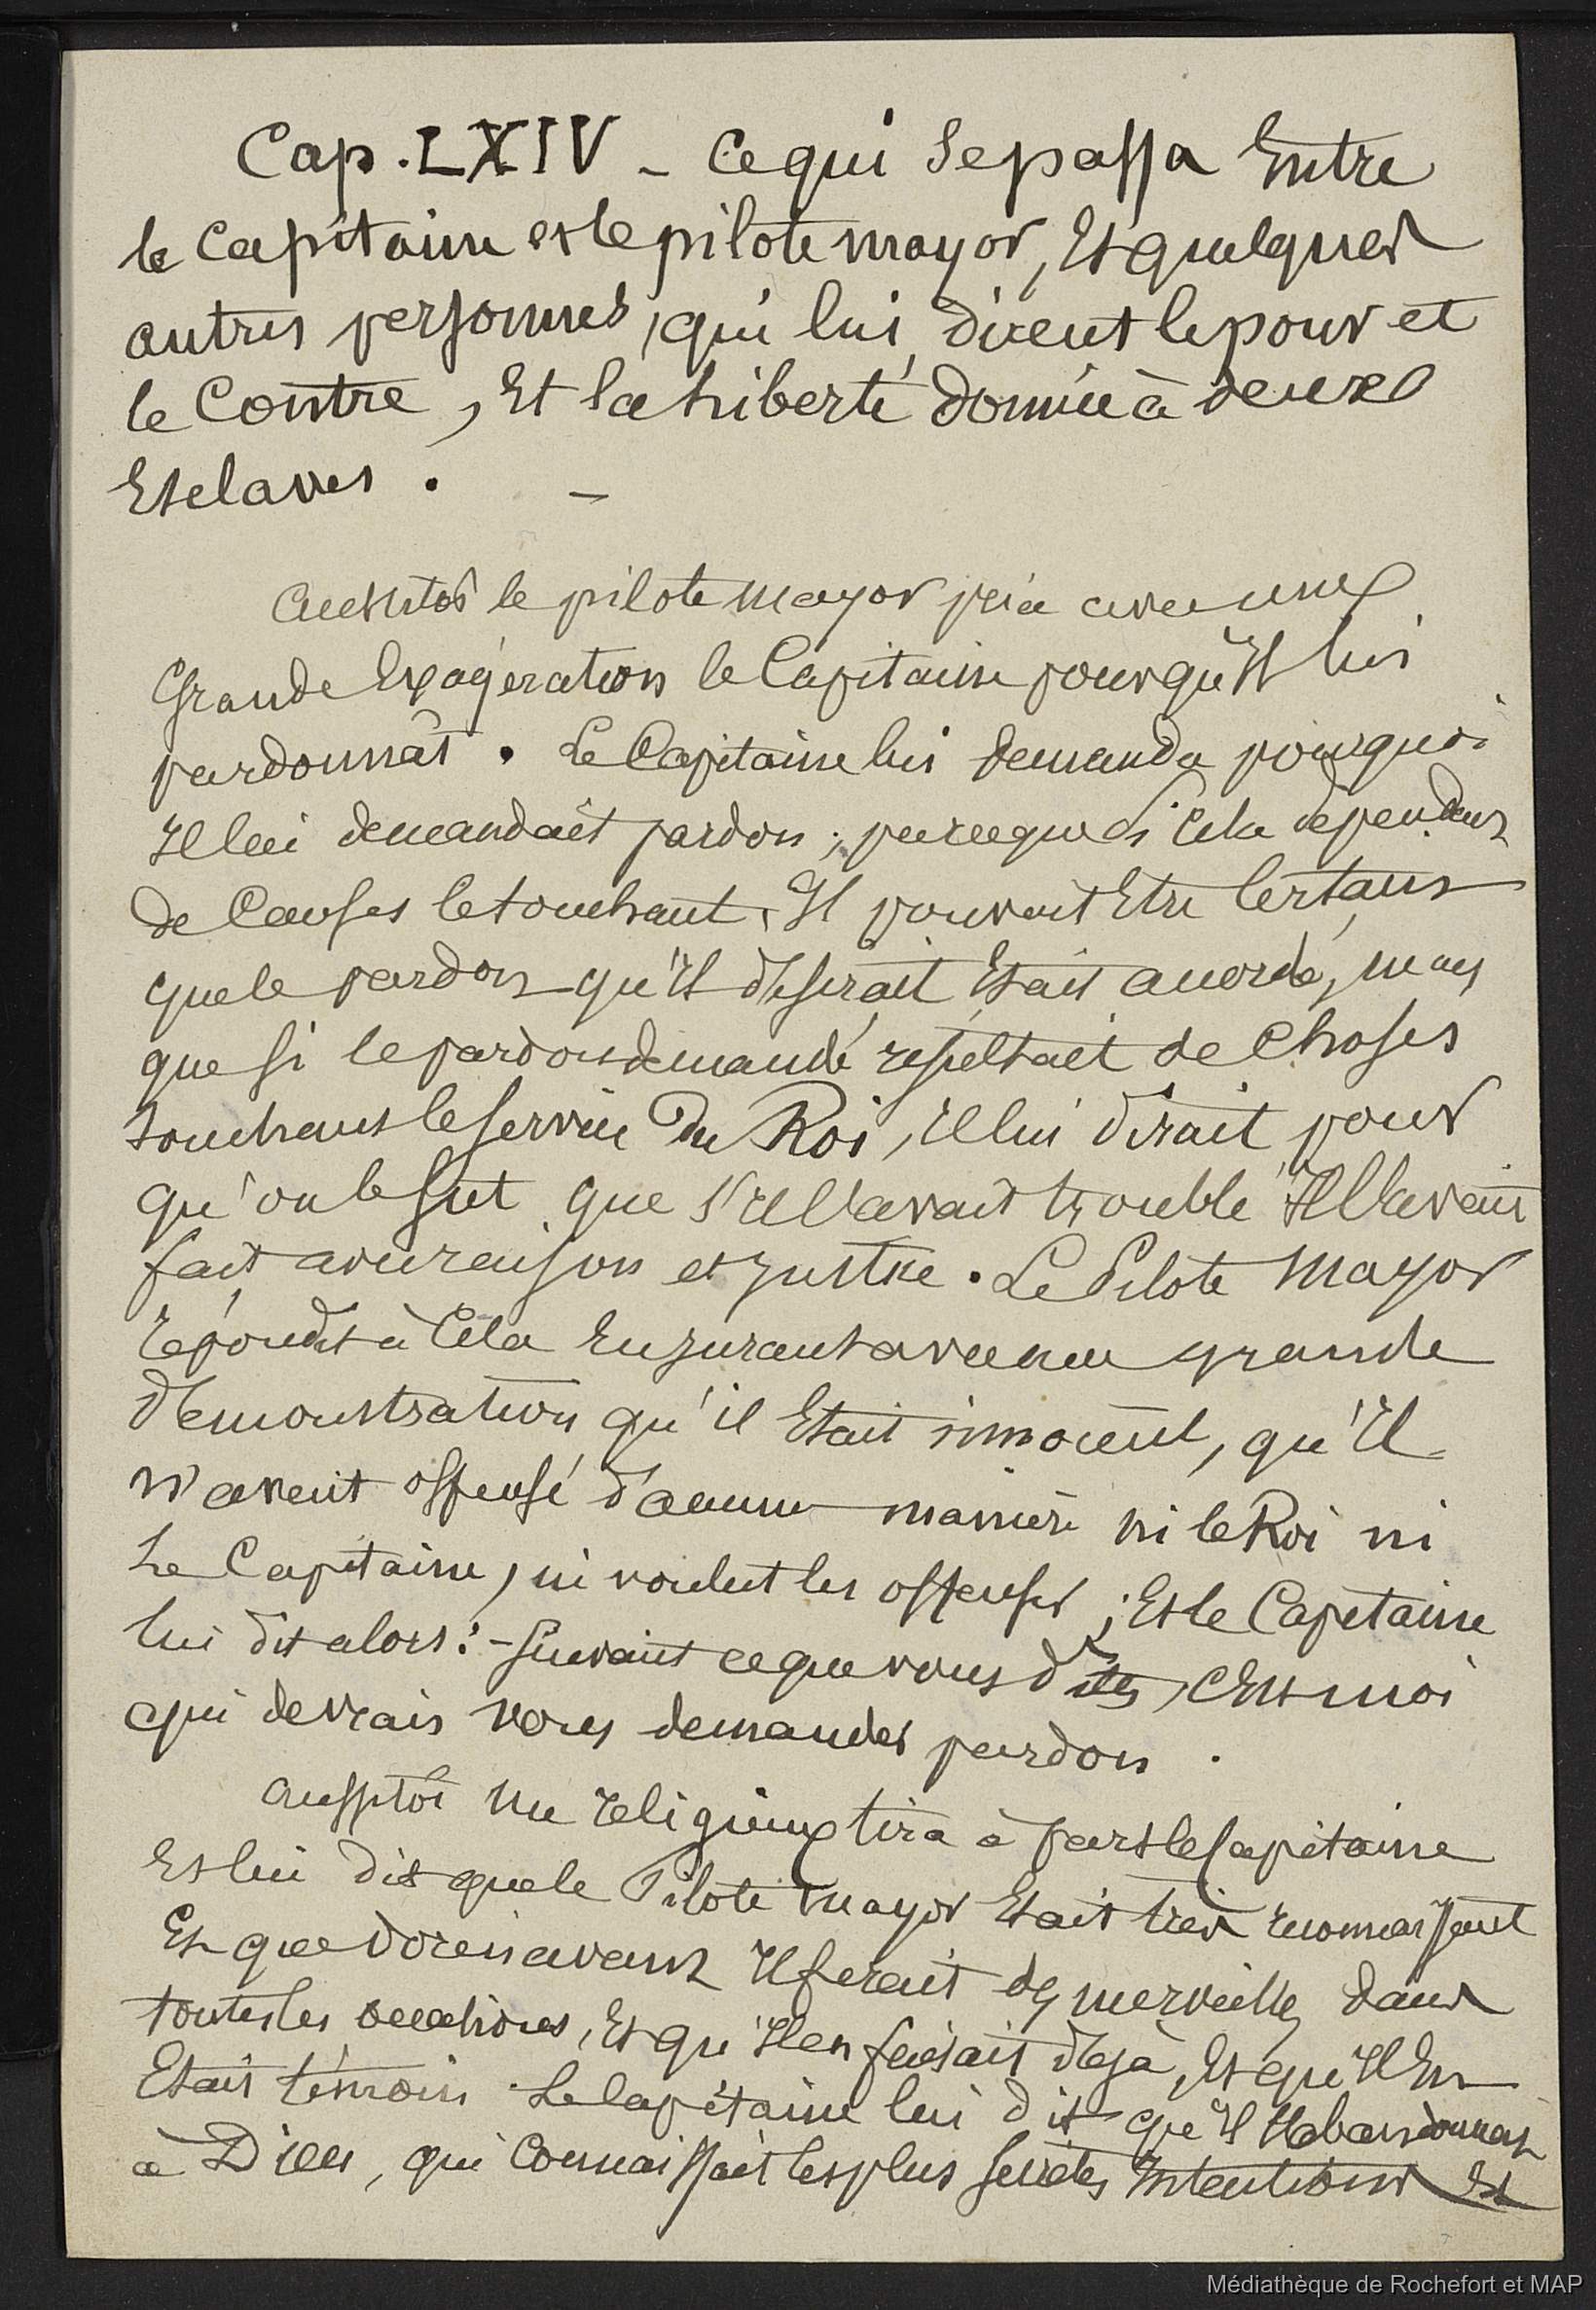 Cap. LXIV - Ce qui se passa Entre
le Capitaine et le pilote mayor, Et quelques
autres personnes, qui lui dirent le pour et
le Contre, Et la liberté donnée à deux
Esclaves. -
Aussitôt le pilote mayor pria avec une
Grande Exagération le Capitaine pour qu'Il lui
pardonnât. Le Capitaine lui demanda pourquoi
Il lui demandait pardon; parceque si Cela dépendant
de Causes le touchant, Il pouvait Etre Certain
que le pardon qu'Il désirait Etait accordé, mais
que si le pardon demandé résultait de Choses
touchant le service du Roi, Il lui dirait pour
qu'on le sut que s'Il l'avait troublé Il l'avait
fait avec raison et justice. Le Pilote Mayor
répondit à Cela En jurant avec une grande
démonstration qu'il Etait innocent, qu'Il
n'avait offensé d'aucune manière ni le Roi ni
Le Capitaine, ni voulut les offenser; Et le Capitaine
lui dit alors: - Suivant ce que vous dites, C'Est moi
qui devrais vous demander pardon.
Aussitôt Un religieux tira à part le Capitaine
Et lui dit que le Pilote mayor Etait très reconnaissant
Et que dorénavant Il ferait des merveilles dans
toutes les occasions, Et qu'Il en faisait déjà, Et qu'Il En
Etait témoin. Le Capitaine lui dit qu'Il l'abandonnait
à Dieu, qui Connaissait les plus secrètes Intentions Et
Médiathèque de Rochefort et MAP